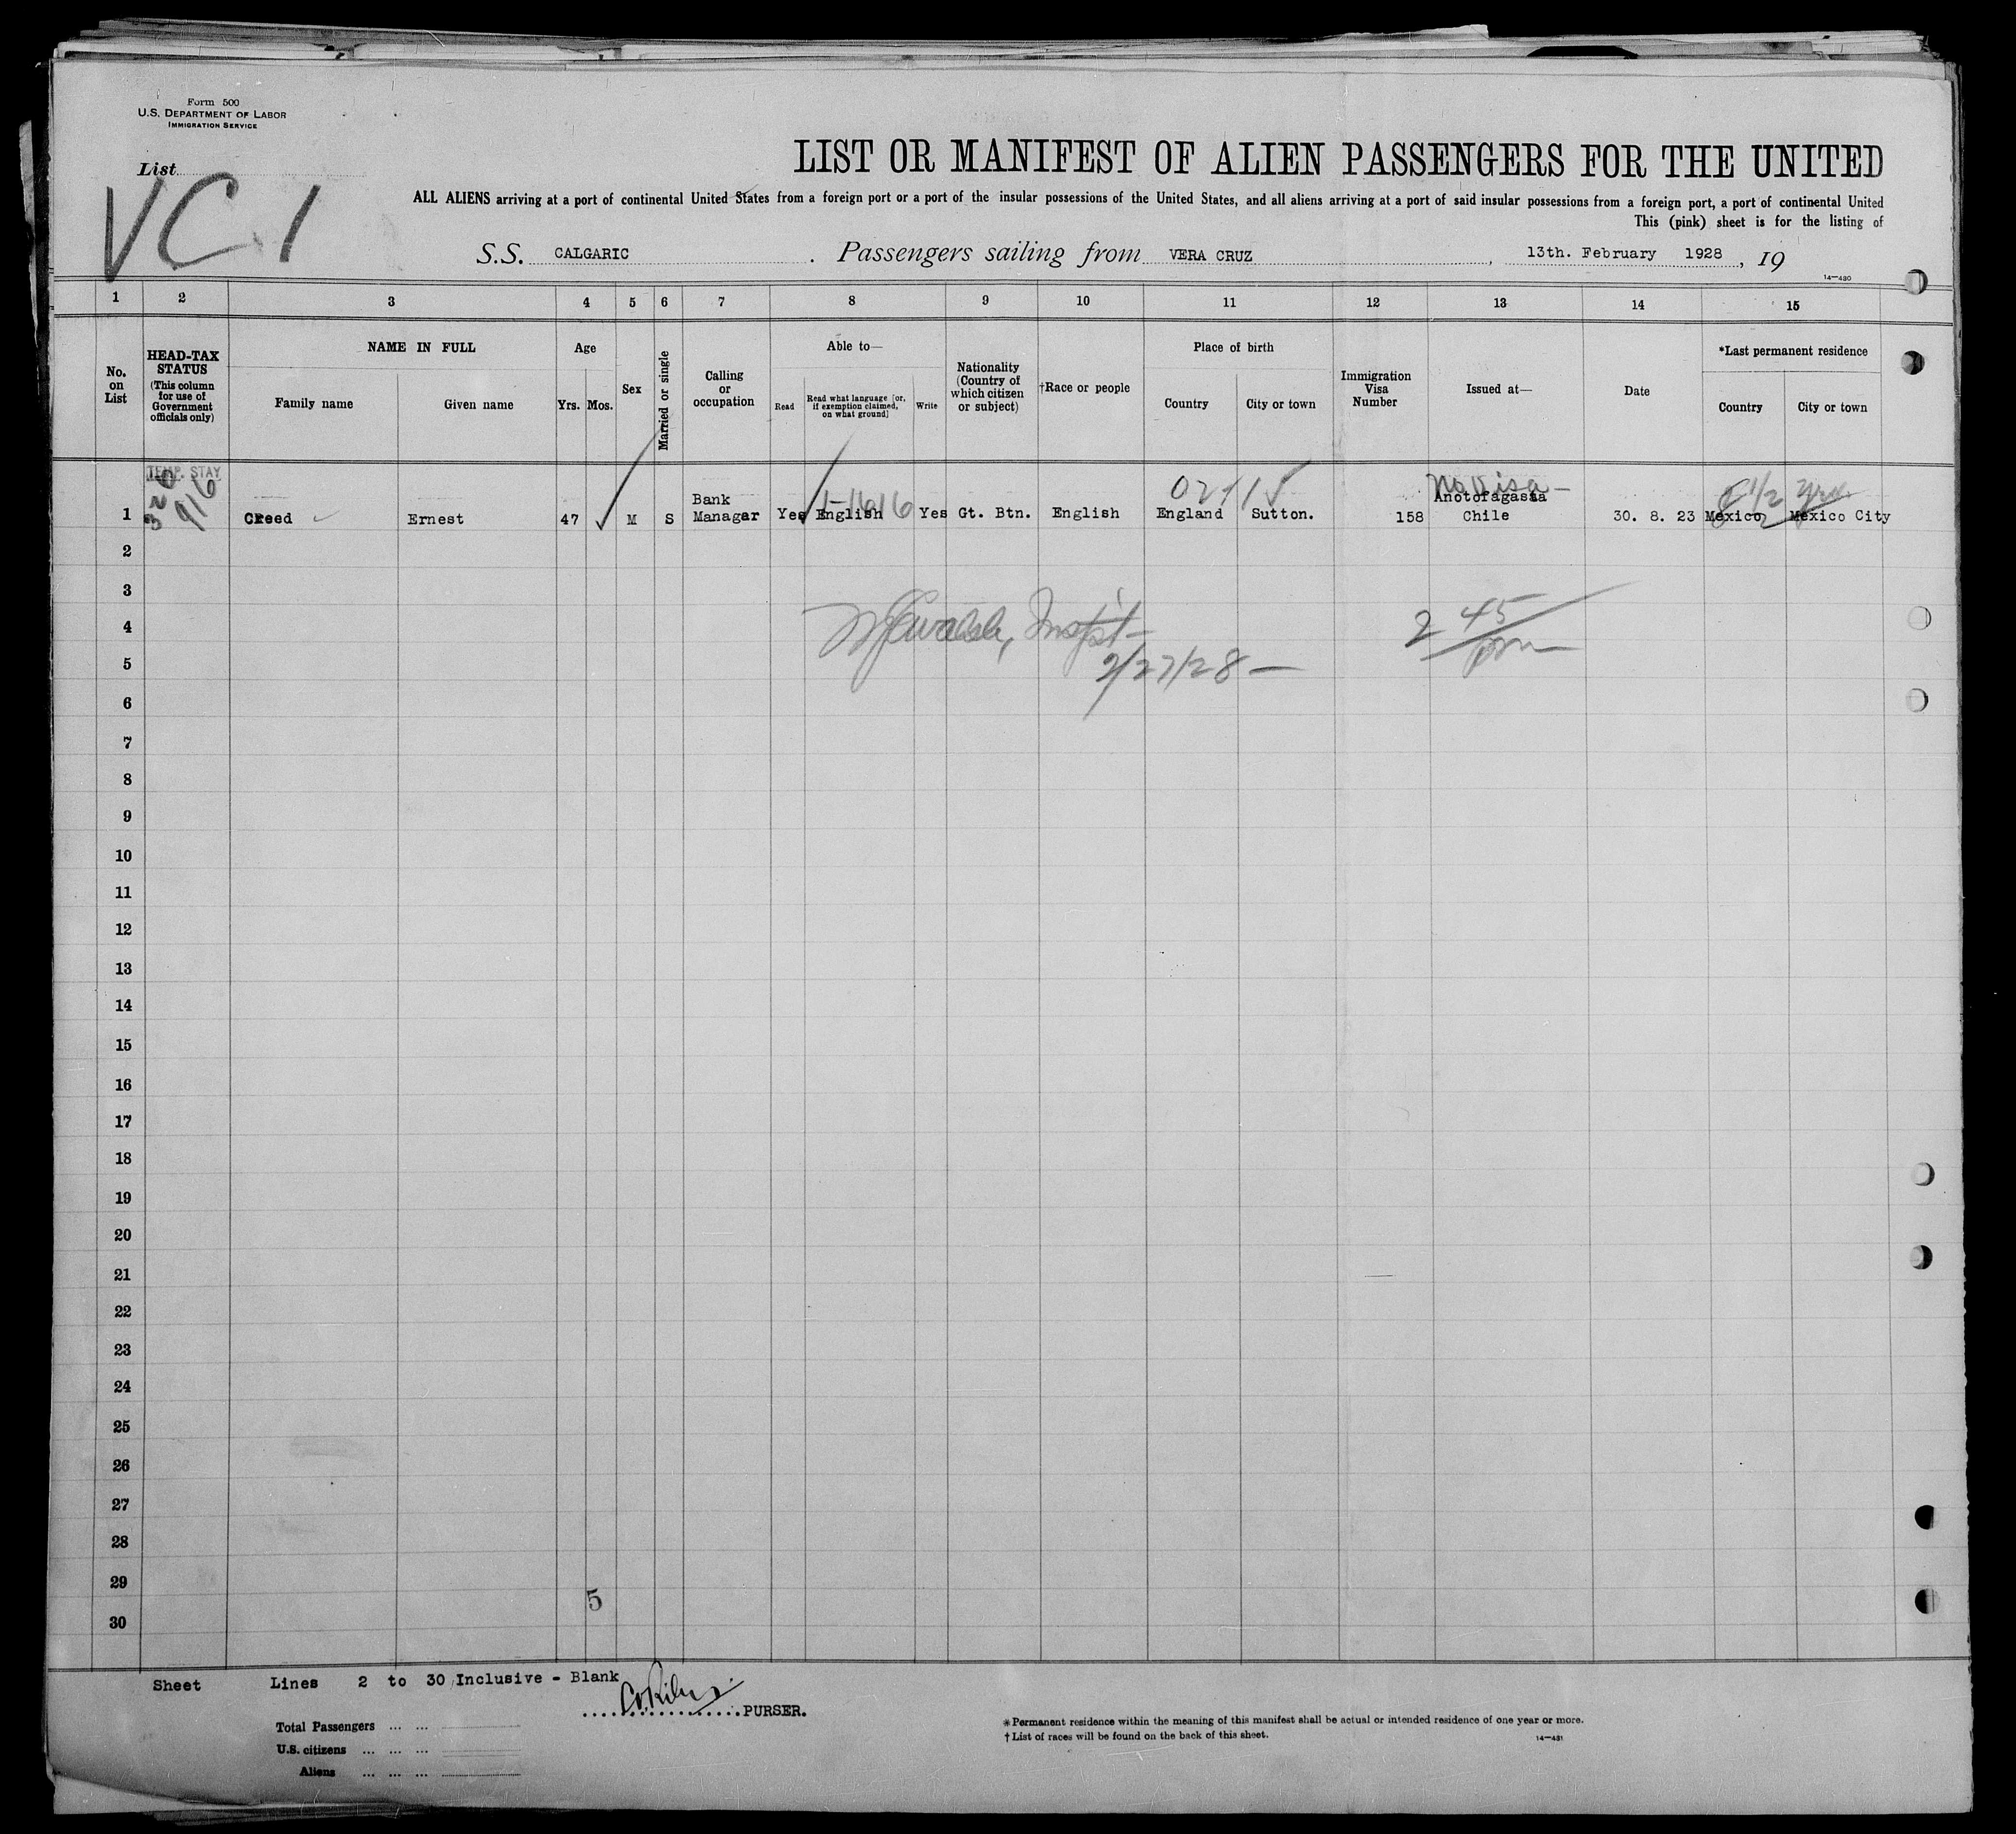 Form 500
U.S. DEPARTMENT OF LABOR
IMMIGRATION SERVICE
List
VC 1
LIST OR MANIFEST OF ALIEN PASSENGERS FOR THE UNITED
ALL ALIENS arriving at a port of continental United States from a foreign port or a port of the insular possessions of the United States, and all aliens arriving at a port of said insular possessions from a foreign port, a port of continental United
This (pink) sheet is for the listing of
S.S. CALGARIC . Passengers sailing from VERA CRUZ , 13th. February 1928 , 19
14—430
1 2 3 4 5 6 7 8 9 10 11 12 13 14 15
No. on List
HEAD-TAX STATUS (This column for use of Government officials only)
NAME IN FULL
Family name
Given name
Age
Yrs. Mos.
Sex
Married or single
Calling or occupation
Able to—
Read
Read what language [or, if exemption claimed, on what ground]
Write
Nationality (Country of which citizen or subject)
†Race or people
Place of birth
Country
City or town
Immigration Visa Number
Issued at—
Date
*Last permanent residence
Country
City or town
TEMP. STAY
326
916
1-1616
No visa —
1 Creed Ernest 47 M S Bank Manager Yes English Yes Gt. Btn. English England Sutton. 158 Anotofagasta Chile 30. 8. 23 Mexico Mexico City
1/2 yrs
2
3
4
5
Inspt-
2/27/28 —
2 45/pm
6
7
8
9
10
11
12
13
14
15
16
17
18
19
20
21
22
23
24
25
26
27
28
29
5
30
Sheet Lines 2 to 30 Inclusive - Blank
PURSER.
Total Passengers ... ...
U.S. citizens ... ... ...
Aliens ... ... ...
* Permanent residence within the meaning of this manifest shall be actual or intended residence of one year or more.
† List of races will be found on the back of this sheet.
14—431